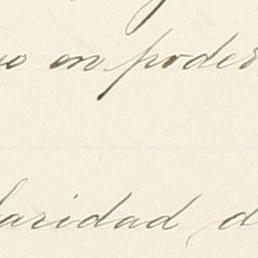 en poder
laridad, d